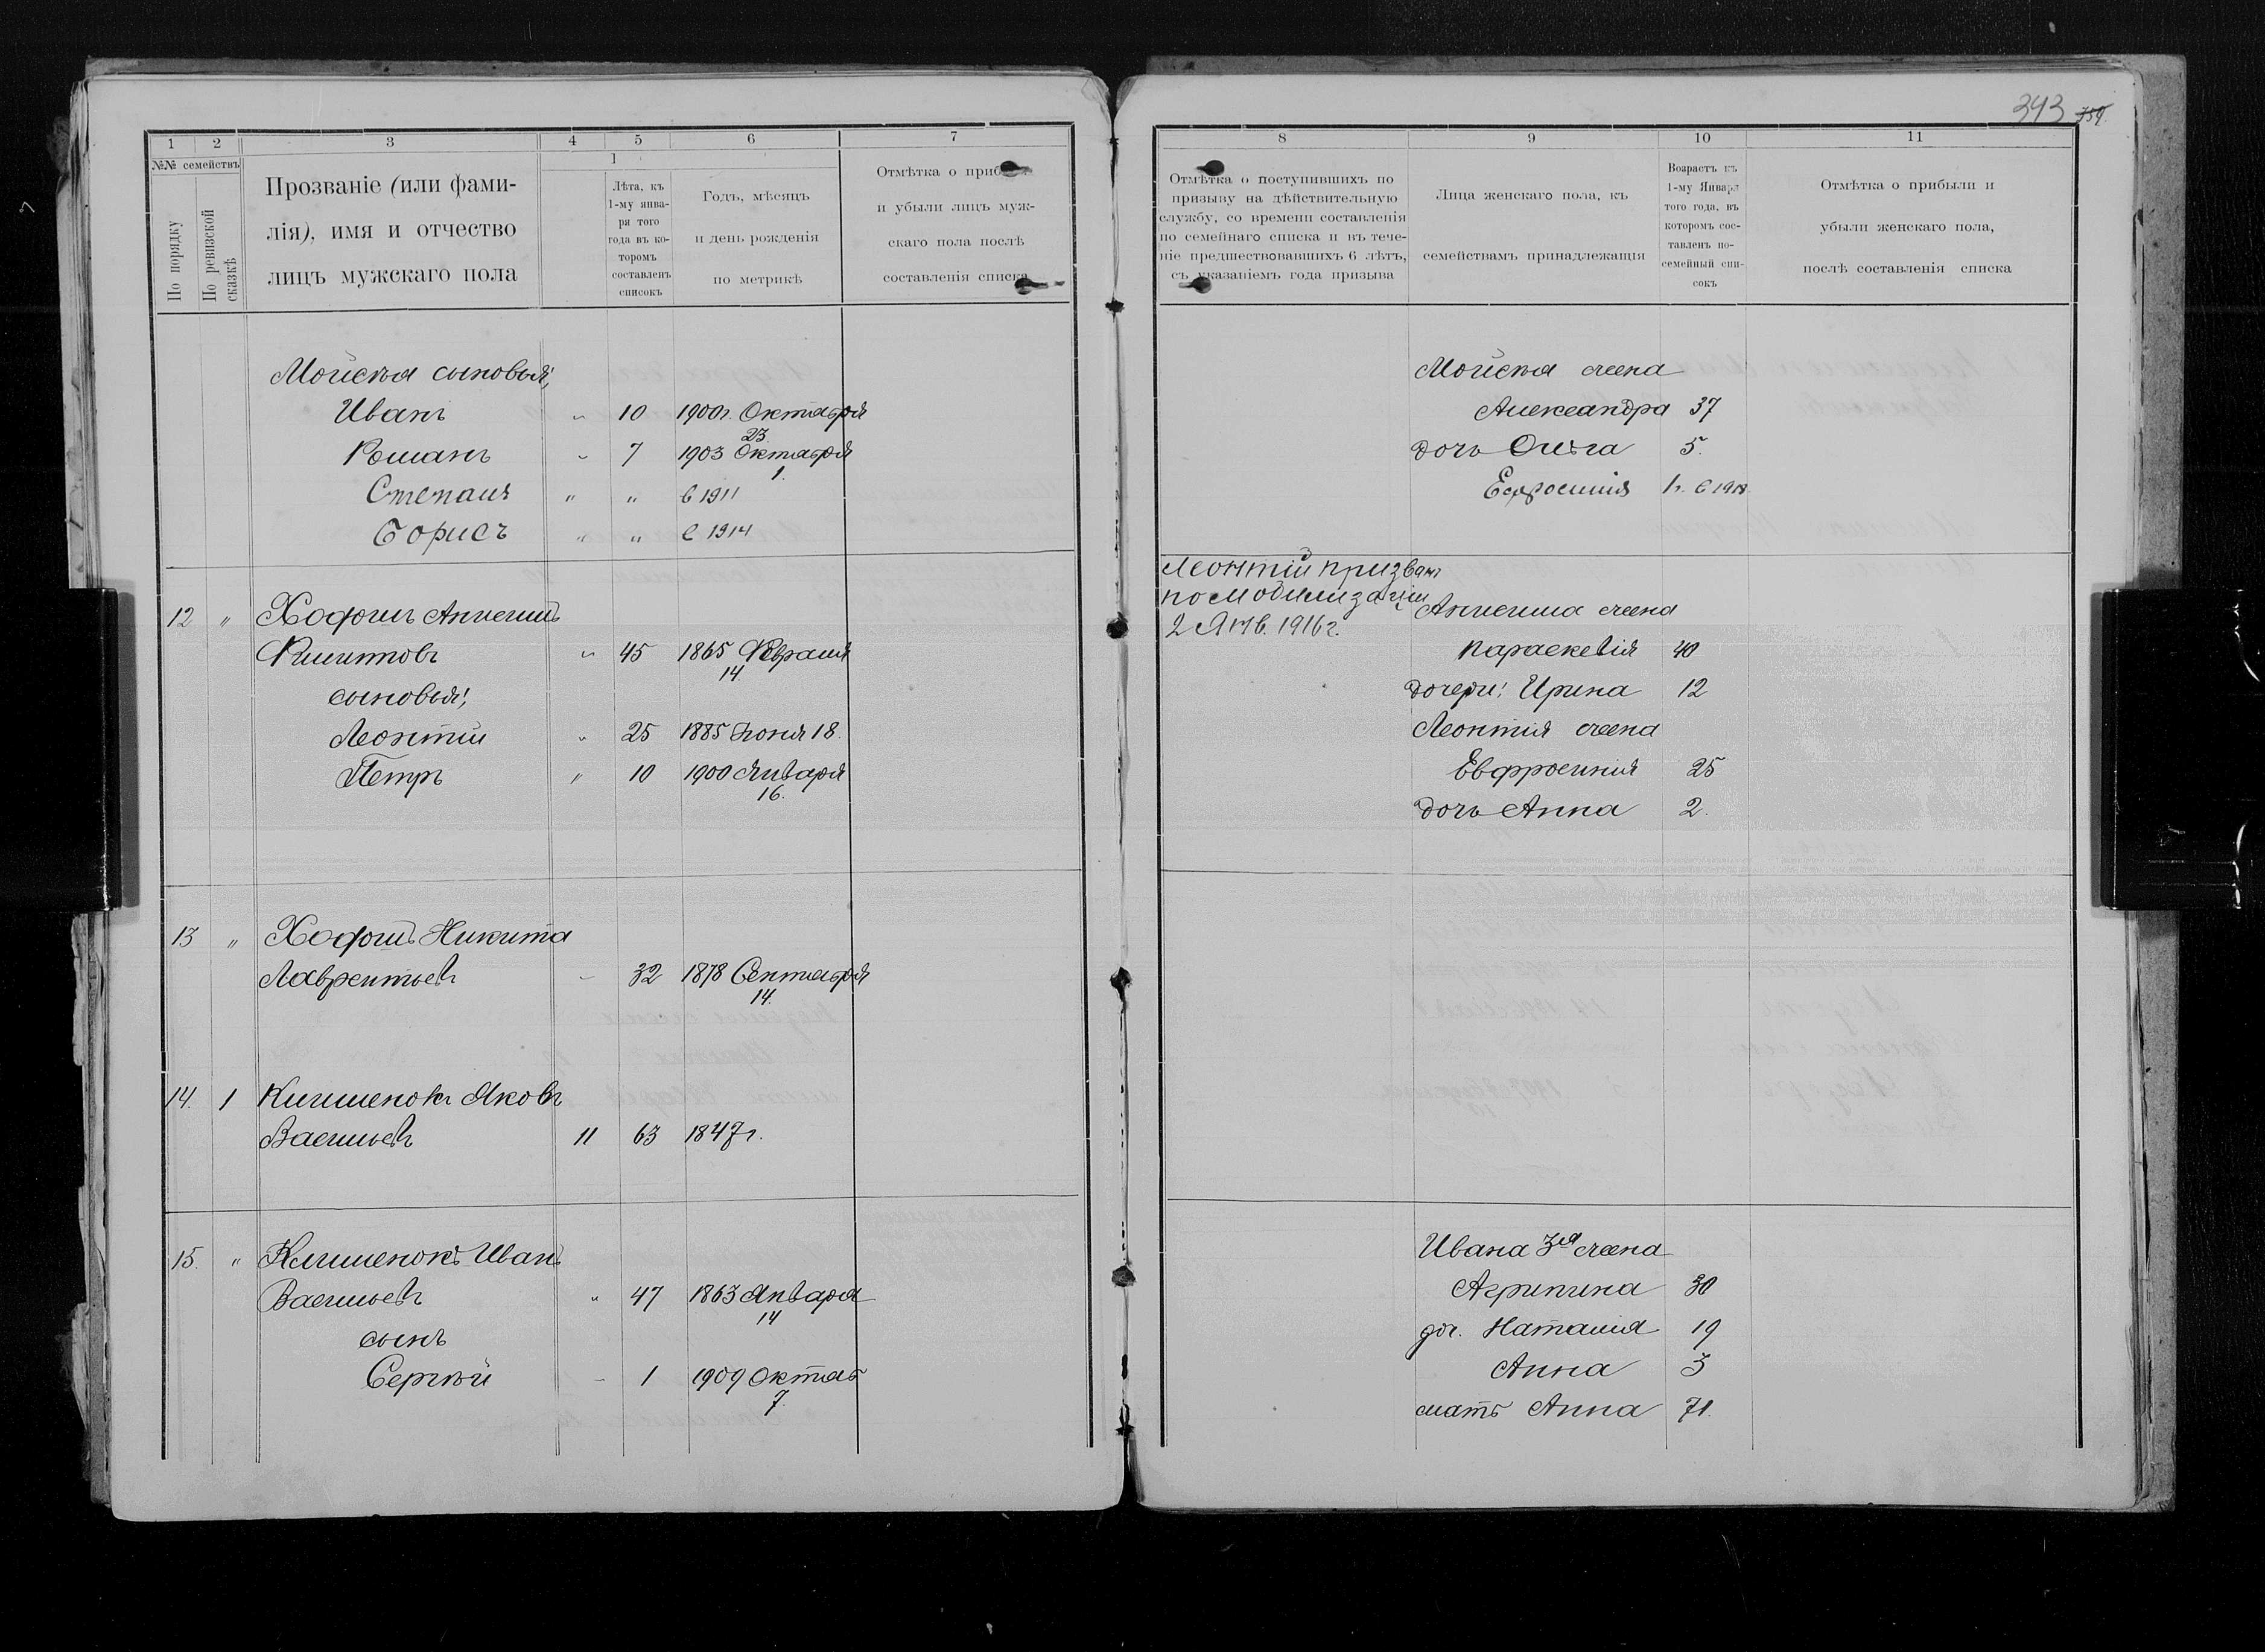 343 759.
1 2 3 4 5 6 7
№№ семействъ
По порядку
По ревизской сказкѣ
Прозваніе (или фами-
лія), имя и отчество
лицъ мужскаго пола
1
Лѣта, къ
1-му янва-
ря того
года въ ко-
торомъ
составленъ
списокъ
Годъ, мѣсяцъ
и день рожденія
по метрикѣ
Отмѣтка о приб
и убыли лицъ муж-
скаго пола послѣ
составленія списка
Мойсѣя сыновья:
Иванъ " 10 1900г. Октября
23.
Романъ " 7 1903 Октября
1.
Степанъ " " в 1911
Борисъ " " в 1914
12 "
Филиповъ " 45 1865 Февраля
14
сыновья:
Леонтій " 25 1885 Іюня 18.
Петръ " 10 1900 Января
16.
13 " Ходошъ Никита
Лаврентьевъ " 32 1878 Сентября
14.
14. 1 Климшенокъ Яковъ
Васильевъ 11 63 1847г.
15. " Климшенокъ Иванъ
Васильевъ " 47 1863 Января
14
сынъ
Сергѣй - 1 1909 Октяб
7.
8 9 10 11
Отмѣтка о поступившихъ по
призыву на дѣйствительную
службу, со времени составленія
по семейнаго списка и въ тече-
ніе предшествовавшихъ 6 лѣтъ,
съ указаніемъ года призыва
Лица женскаго пола, къ
семействамъ принадлежащія
Возрастъ къ
1-му Января
того года, въ
которомъ сос-
тавленъ по-
семейный спи-
сокъ
Отмѣтка о прибыли и
убыли женскаго пола,
послѣ составленія списка
Мойсѣя жена
Александра 37
дочь Ольга 5.
Ефросинія
Леонтій призванъ
по мобилизаціи
2 Янв. 1916г.
жена
Параскевія 40
дочери: Ирина 12
Леонтія жена
Евфросинія 25
дочь Анна 2.
Ивана 3я жена
Агрипина 30
доч. Наталія 19
Анна 3
мать Анна 71.